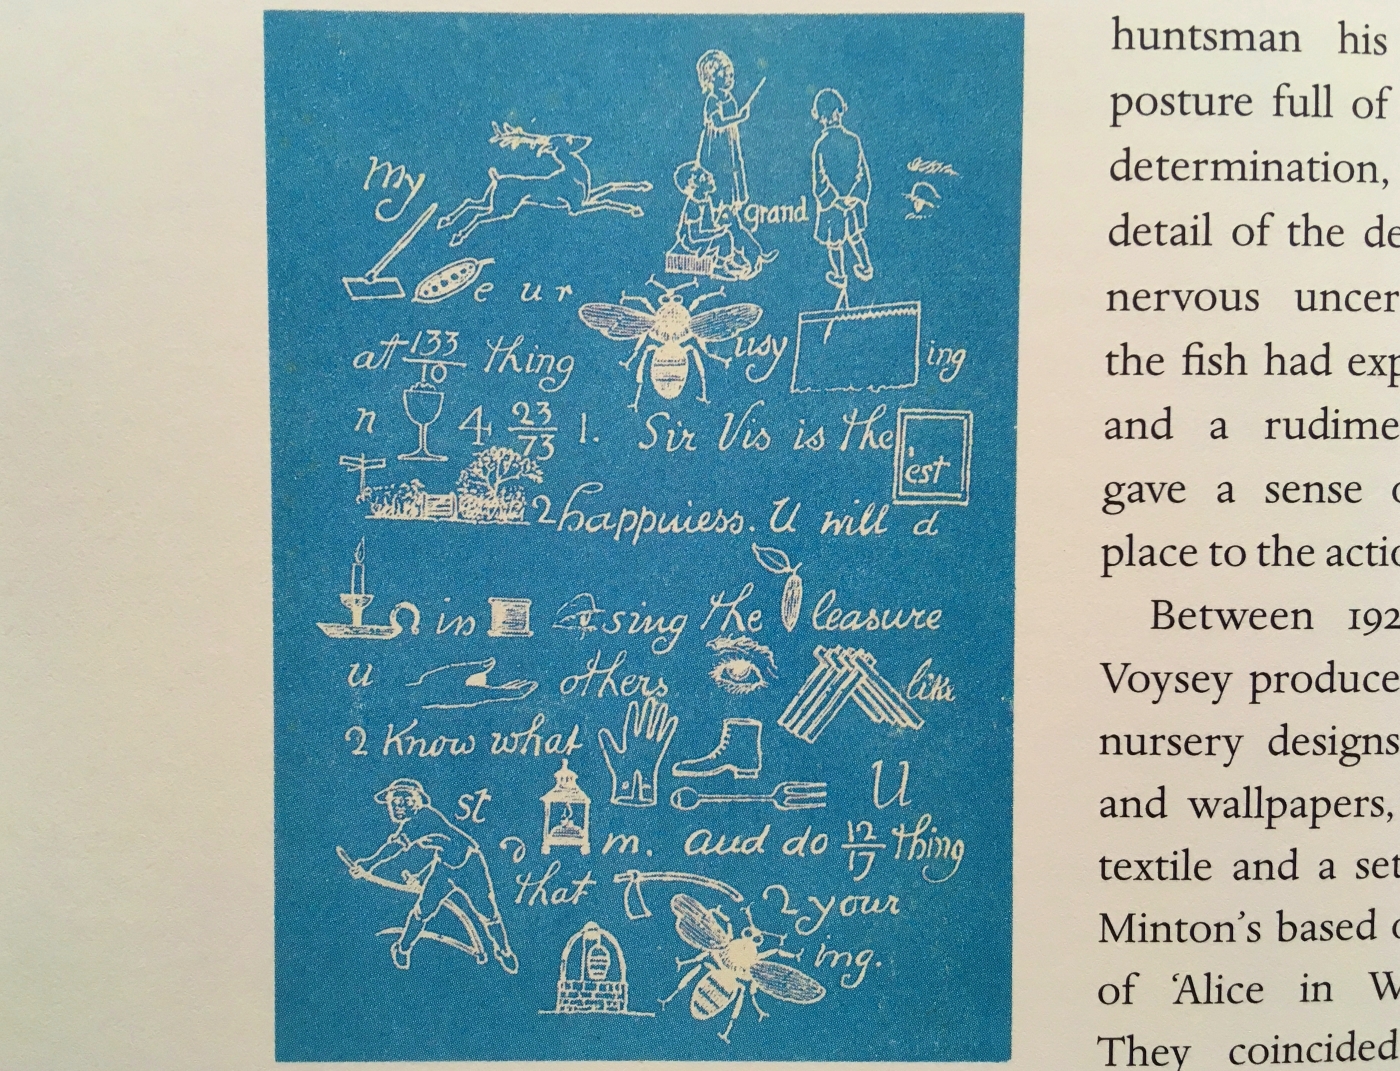 my grand
e u r
at 133/10 thing usy ing
n 4 23/73 1. Sir Vis is the 'est
2 happiness. U will d
in sing the leasure
u others like
2 Know what
U
st
m. and do 12/17 thing
that 2 your
ing.
huntsman his
posture full of
determination,
detail of the de
nervous uncer
the fish had exp
and a rudime
gave a sense o
place to the actio
Between 192
Voysey produce
nursery designs
and wallpapers,
textile and a set
Minton's based o
of 'Alice in W
They coincided